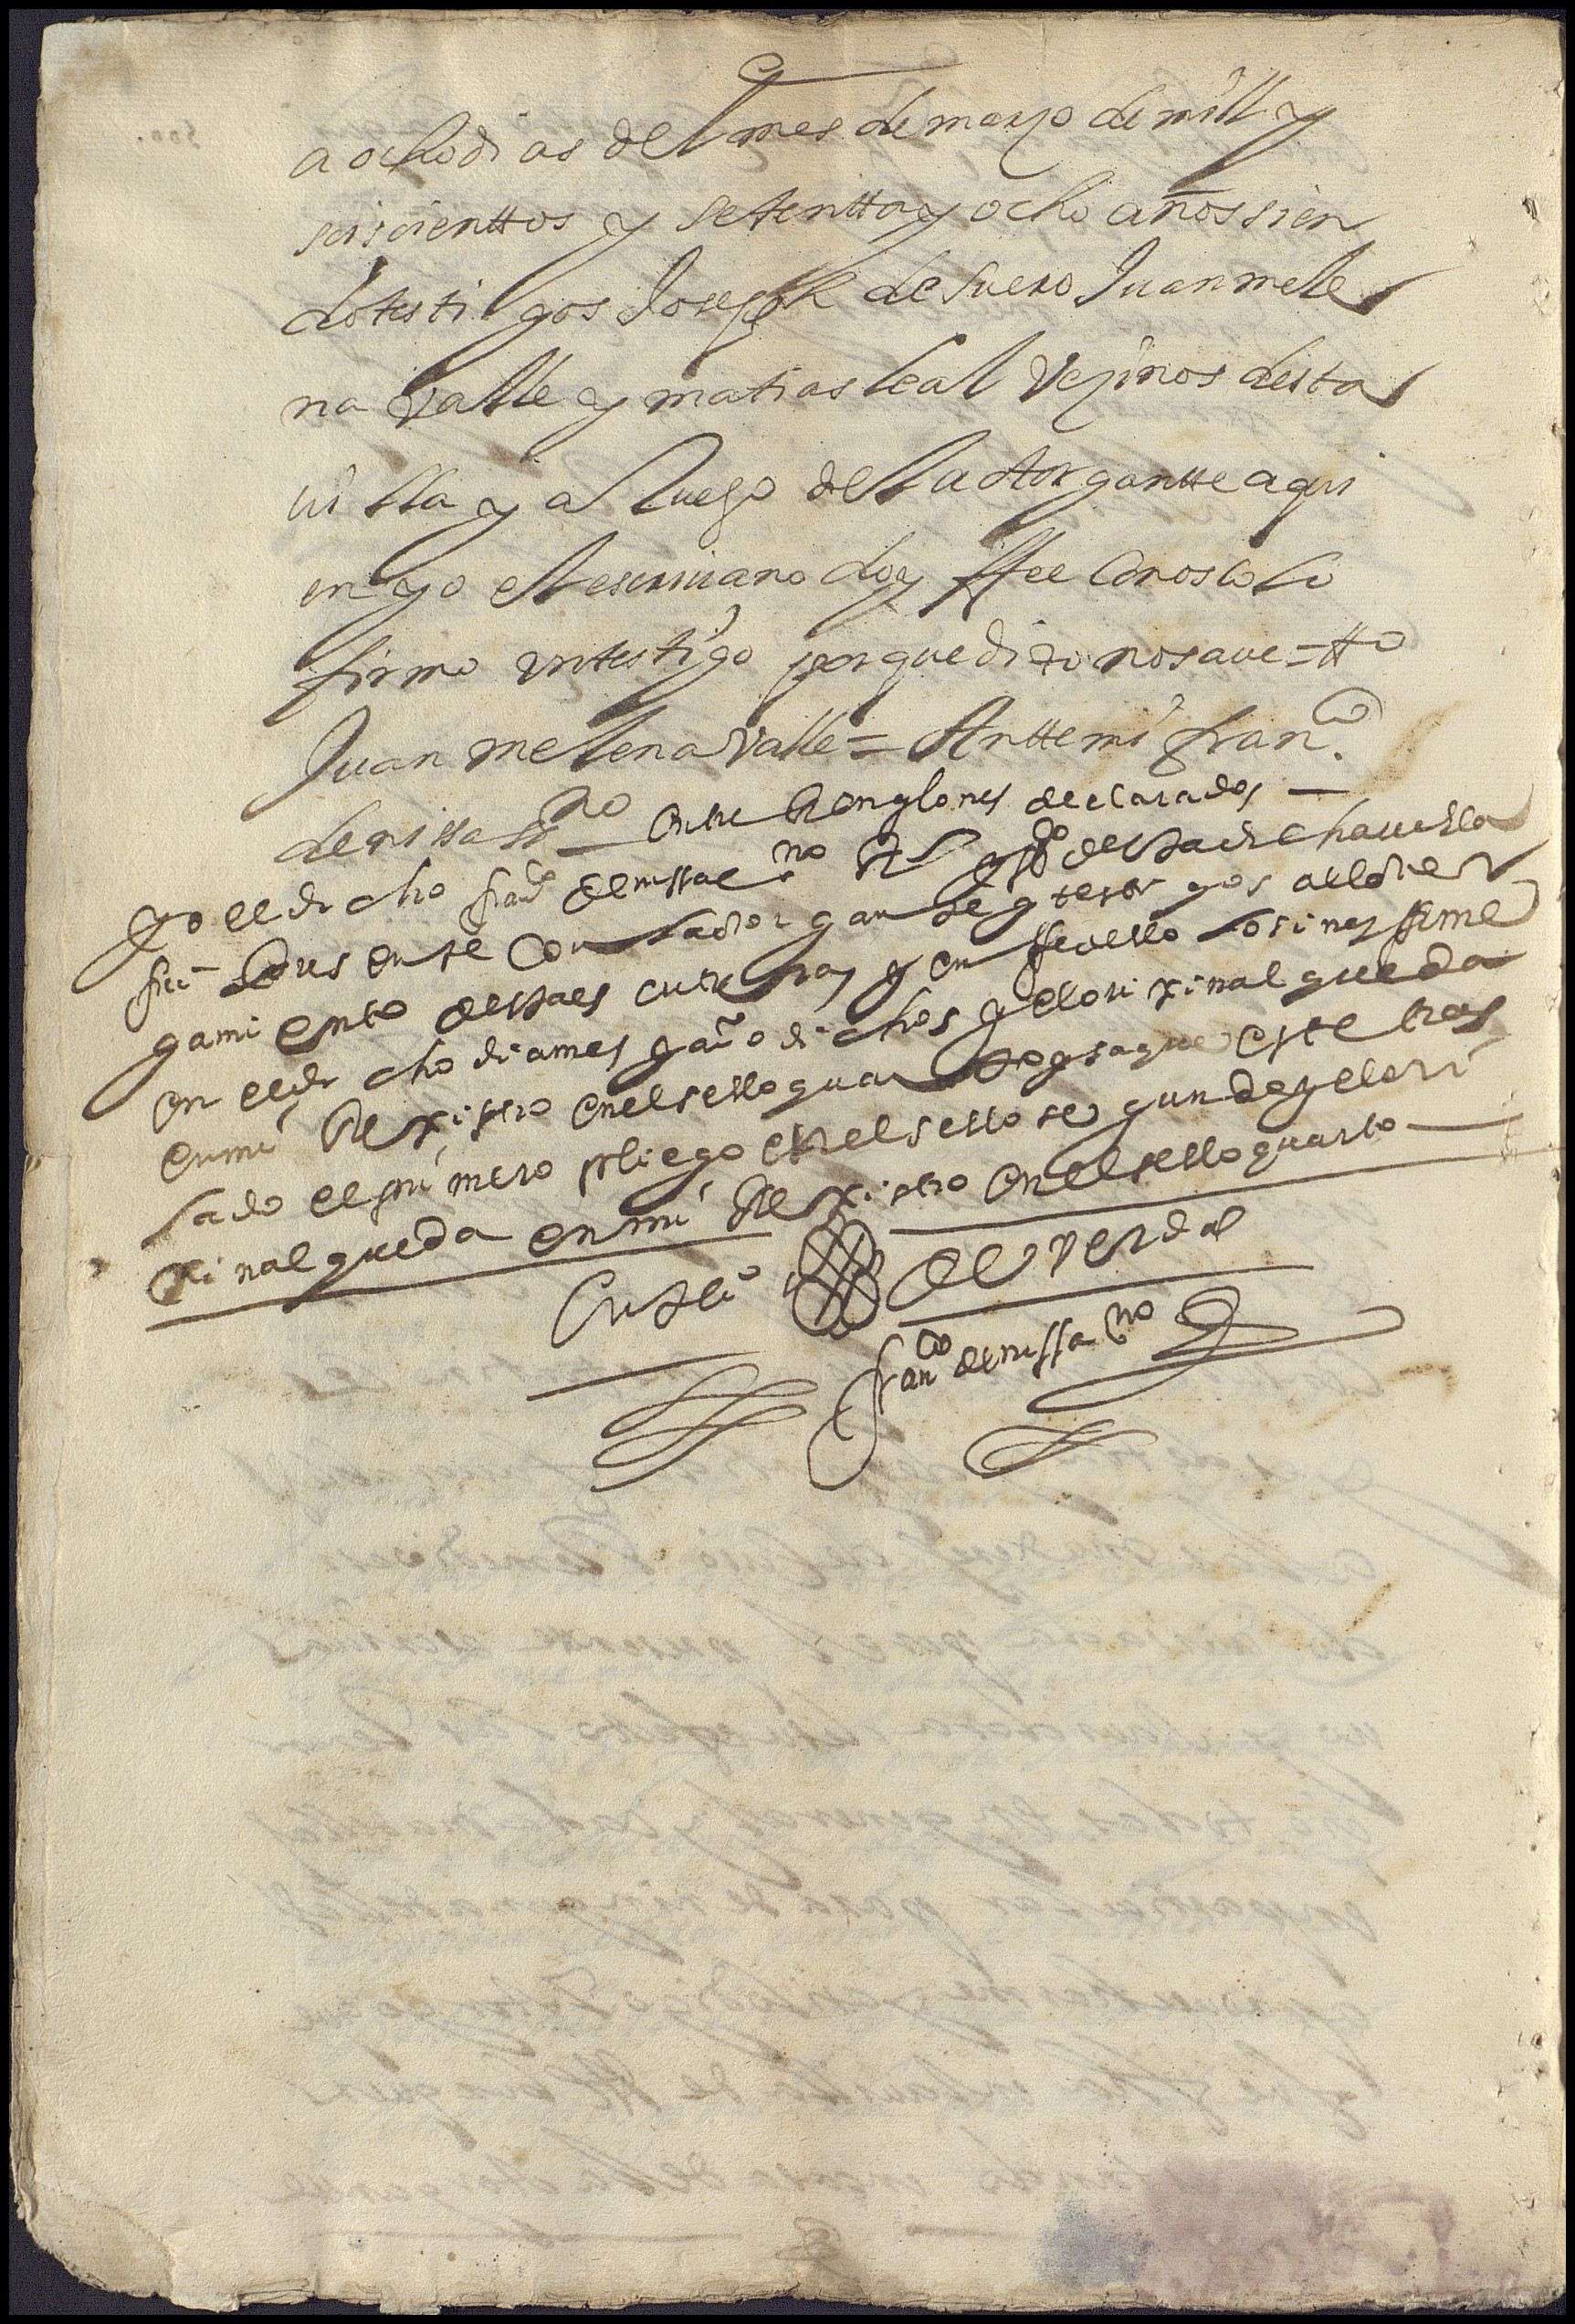 a ocho dias del mes de mayo de mill y
seiscienttos y setentta y ocho años sien
do testigos Joseph de suero Juan mele
na valle y matias leal vezinos desta
villa y a Ruego del la otorgantte a qui
en yo el escrivano doy ffee conosco lo
firmo un testigo porque dixo no saue = tto
Juan melena valle = Antte mi fran.co
de nissa ss no — entre Renglones declarados —
yo el dicho fran.co de nissa ess.no R l y pp.co desta dicha uilla
fui presente con la otorgante y testigos al otor
gamiento desta escritura y en fee dello lo sine y firme
en el dicho dia mes y año dichos y el orixinal queda
en mi Rexistro en el sello quarto y saque este tras
lado el primero pliego en el sello segundo y el ori
xinal queda en mi Rexistro en el sello quarto —
En testi.o de verdad
fran.co de nissa no